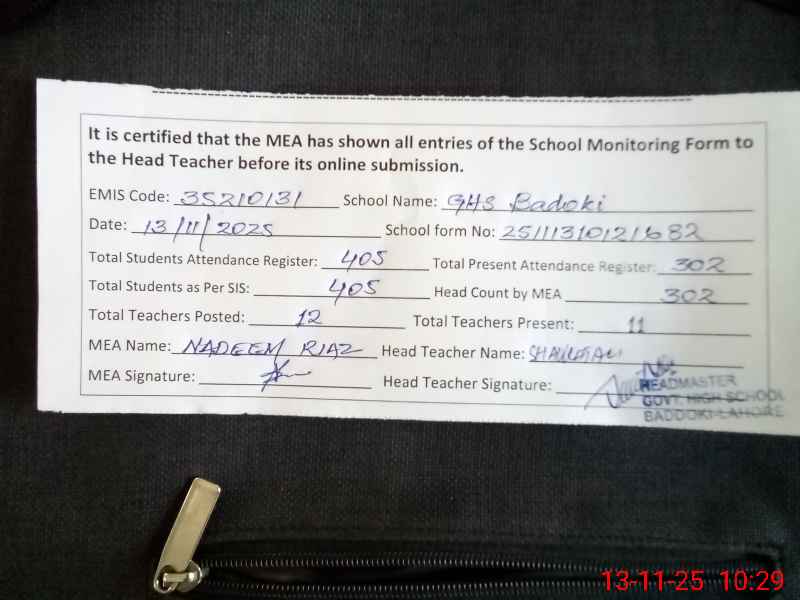 It is certified that the MEA has shown all entries of the School Monitoring Form to
the Head Teacher before its online submission.
EMIS Code: 35210131 School Name: GHS Badoki
Date: 13/11/2025 School form No: 25111310121682
Total Students Attendance Register: 405 Total Present Attendance Register: 302
Total Students as Per SIS: 405 Head Count by MEA 302
Total Teachers Posted: 12 Total Teachers Present: 11
MEA Name: NADEEM RIAZ Head Teacher Name:
MEA Signature: Head Teacher Signature:
HEADMASTER
GOVT. HIGH SCHOOL
BADDOKI-LAHORE
13-11-25 10:29